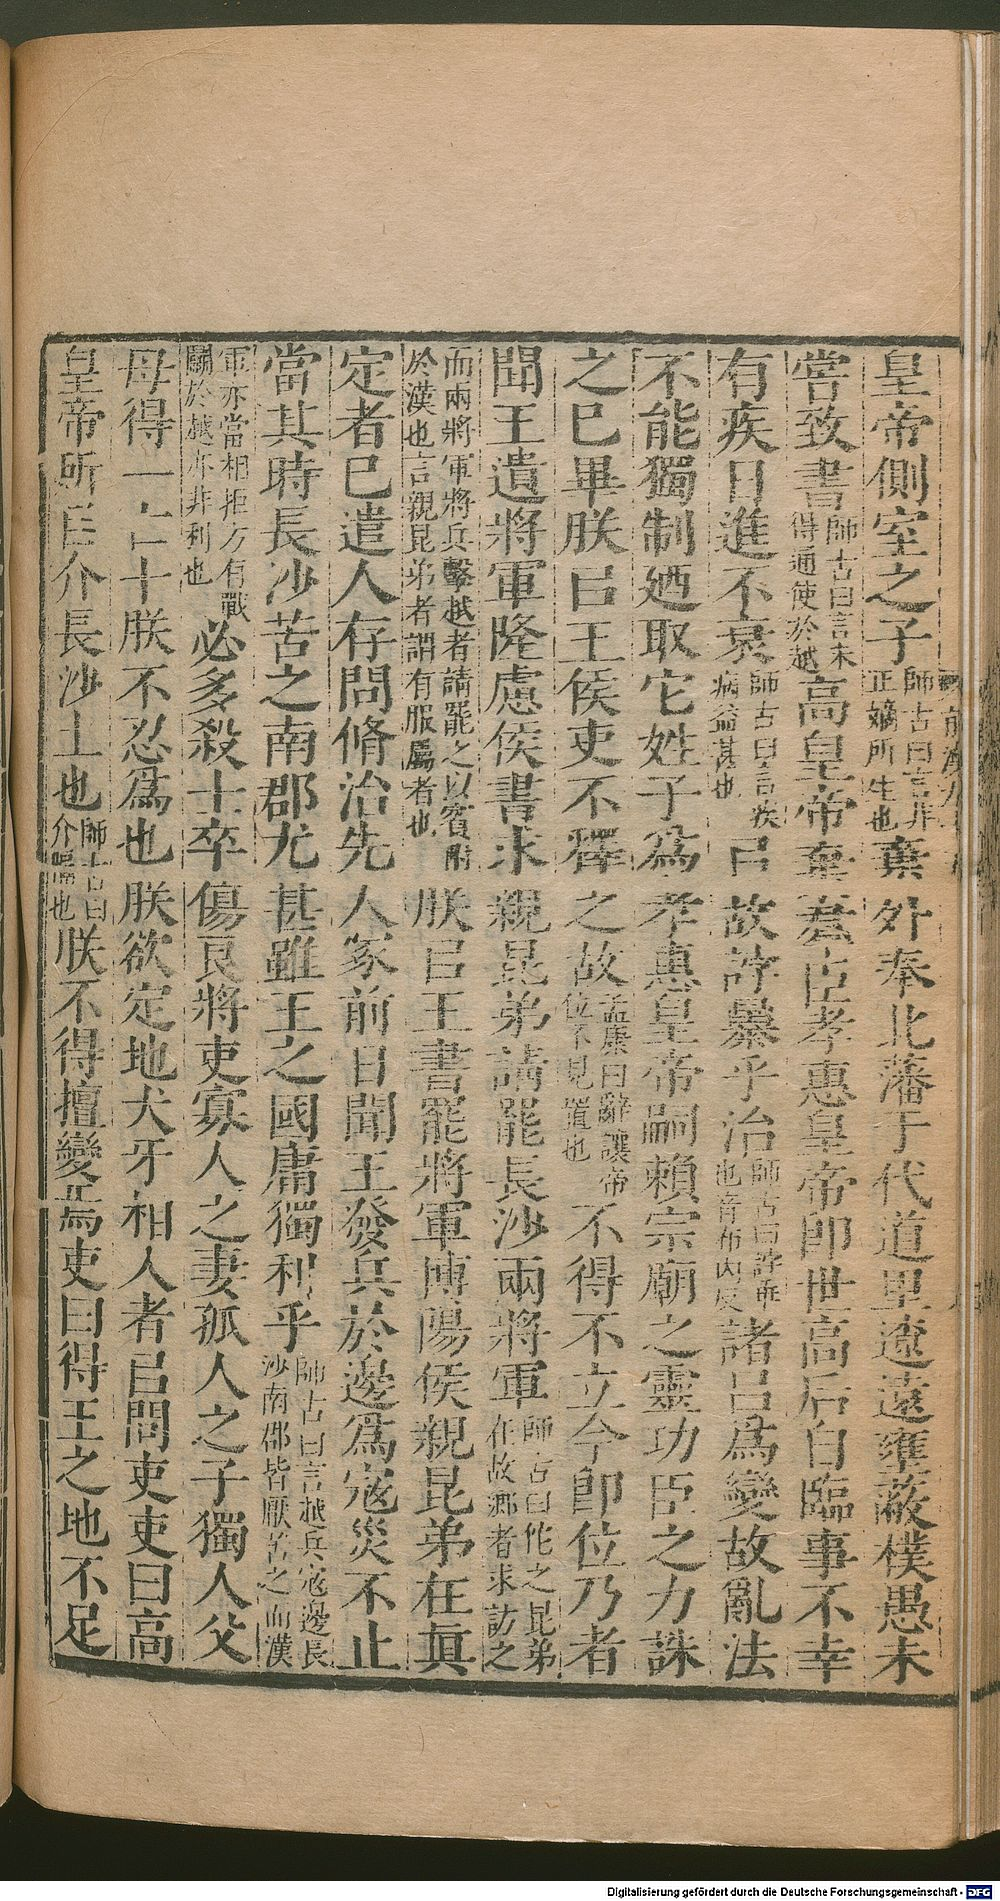 皇帝側室之子師古曰言非正嫡所生也棄外奉北藩于代道里遼遠壅蔽樸愚未
嘗致書師古曰言未得通使於越高皇帝棄羣臣孝惠皇帝即世高后自臨事不幸
有疾日進不衰師古曰言疾病益甚也㠯故誖暴乎治師古曰誖乖也音布內反諸呂爲變故亂法
不能獨制廼取它姓子爲孝惠皇帝嗣賴宗廟之靈功臣之力誅
之已畢朕㠯王侯吏不釋之故孟康曰辭讓帝位不見置也不得不立今即位乃者
聞王遺將軍隆慮侯書求親昆弟請罷長沙兩將軍師古曰佗之昆弟在故鄉者求訪之
而兩將軍將兵擊越者請罷之以賓附於漢也言親昆弟者謂有服屬者也朕㠯王書罷將軍博陽侯親昆弟在真
定者已遣人存問脩治先人冢前日聞王發兵於邊爲寇災不止
當其時長沙苦之南郡尤甚雖王之國庸獨利乎師古曰言越兵寇邊長沙南郡皆厭苦之而漢
軍亦當相拒方有戰鬬於越亦非利也必多殺士卒傷良將吏寡人之妻孤人之子獨人父
母得一亡十朕不忍爲也朕欲定地犬牙相人者㠯問吏吏曰高
皇帝所㠯介長沙土也師古曰介隔也朕不得擅變焉吏曰得王之地不足
Digitalisierung gefördert durch die Deutsche Forschungsgemeinschaft - DFG